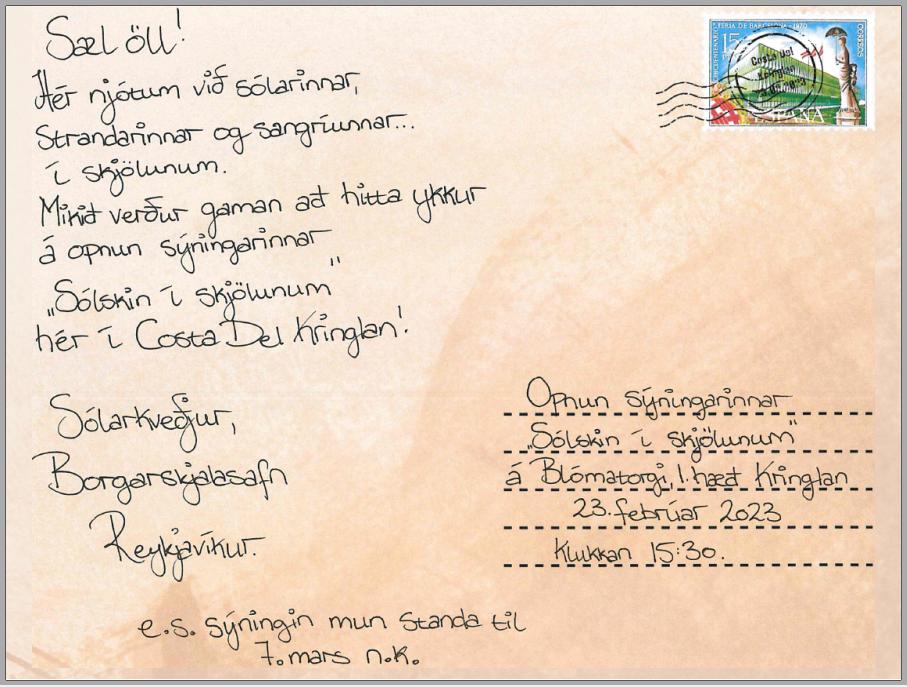 Sæl öll!
Hér njótum við sólarinnar,
strandarinnar og sangríunnar...
í skjölunum.
Mikið verður gaman að hitta ykkur
á opnun sýningarinnar
„Sólskin í skjölunum"
hér í Costa Del Kringlan!
Sólarkveðjur,
Borgarskjalasafn
Reykjavíkur.
e.s. sýningin mun standa til
7. mars n.k.
CINCUENTENARIO FERIA DE BARCELONA - 1970
CORREOS
15
Costa del
Kringlan
ESPAÑA
Opnun sýningarinnar
„Sólskin í skjölunum"
á Blómatorgi, 1. hæð Kringlan
23. febrúar 2023
Klukkan 15:30.